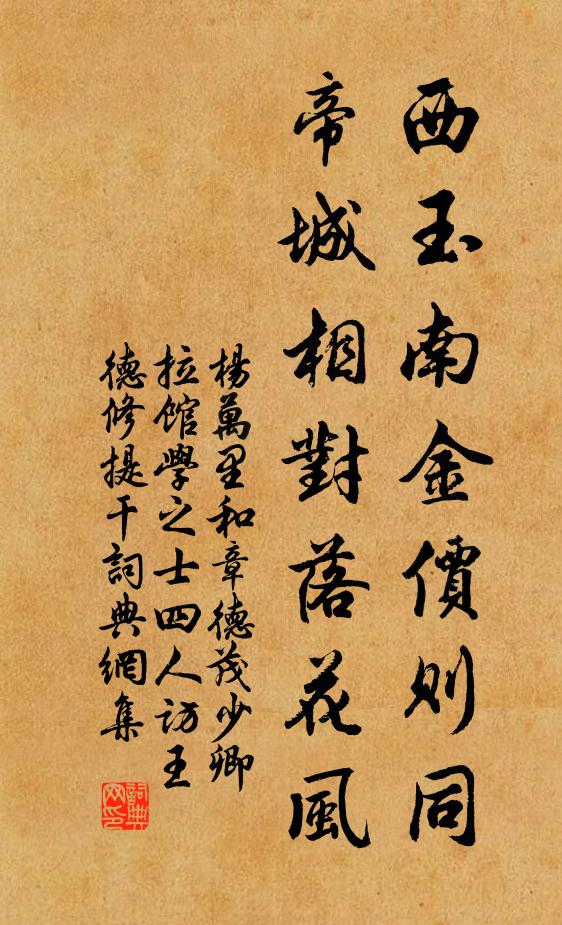 西玉南金價則同
帝城相對落花風
楊萬里和章德茂少卿
拉館學之士四人訪王
德修提干詞典網集
詞典网印